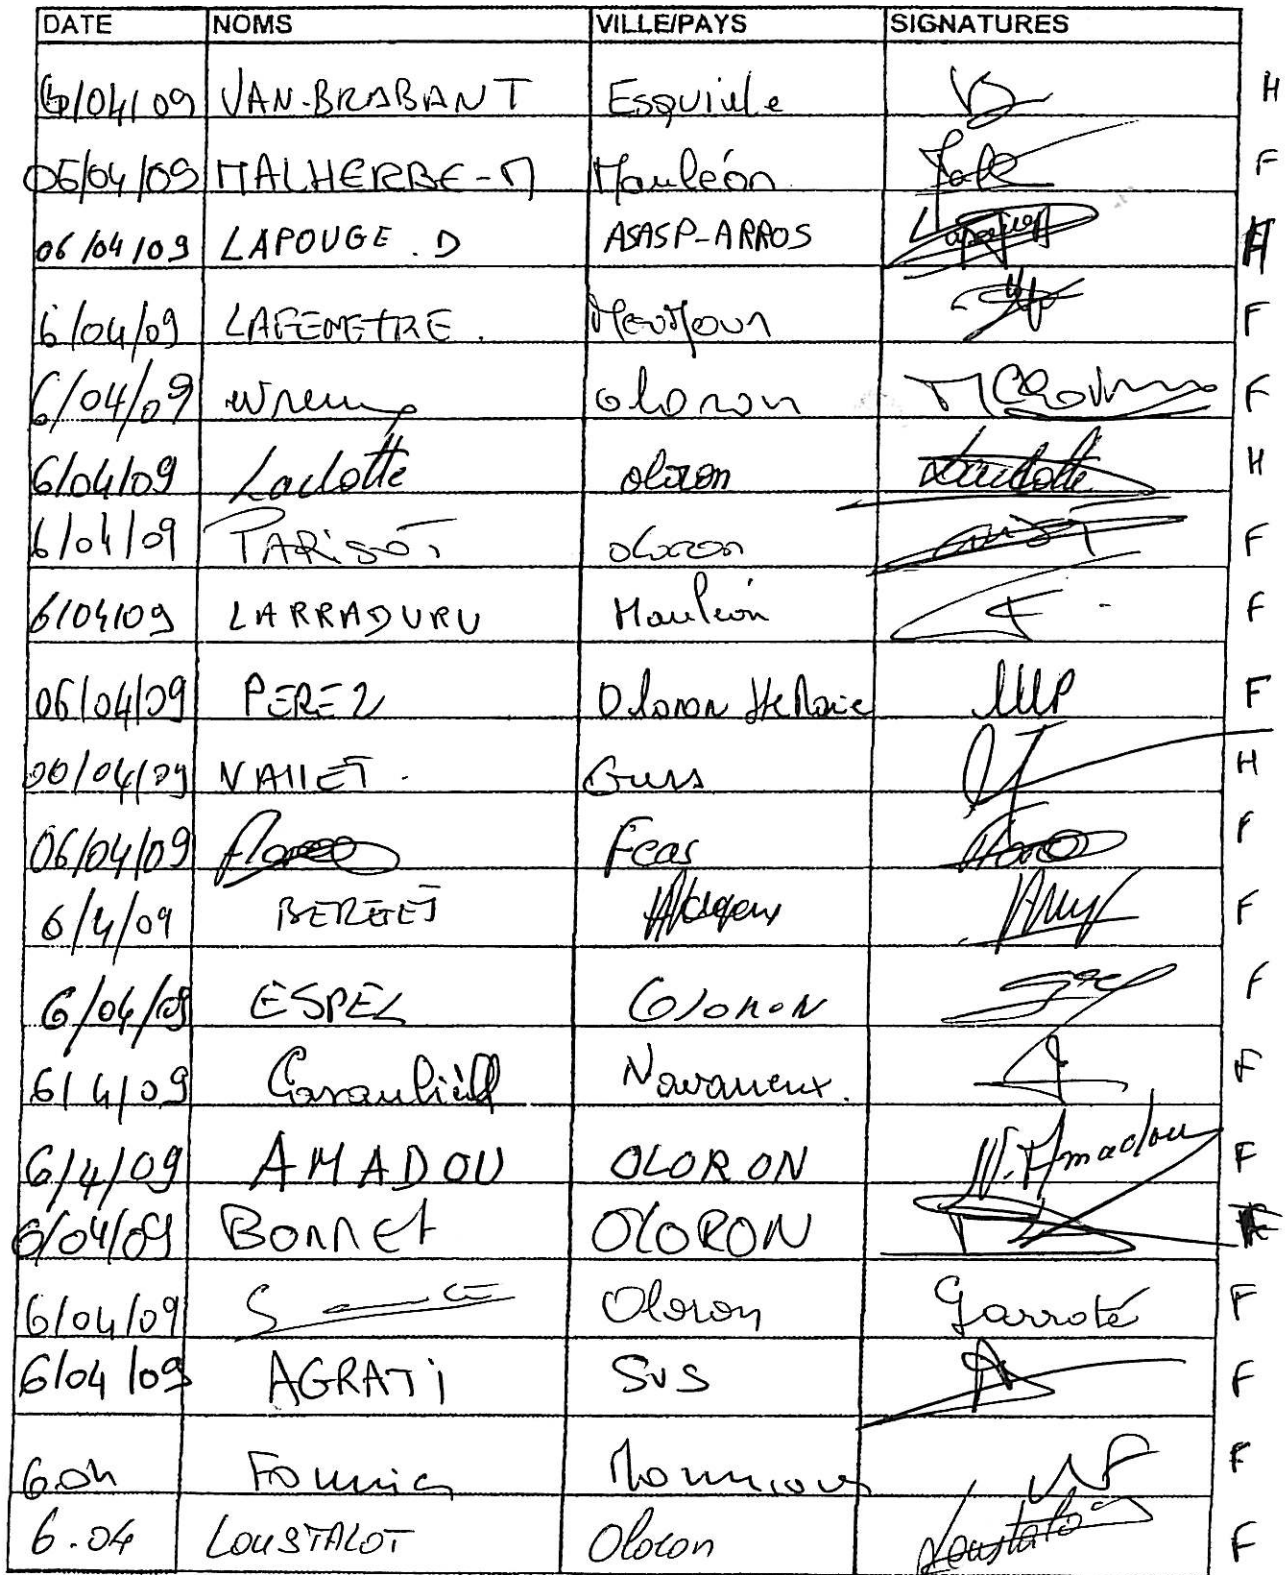 DATE NOMS VILLE/PAYS SIGNATURES
6/04/09 VAN-BRABANT Esquiule H
06/04/09 MALHERBE-M Mauléon F
06/04/09 LAPOUGE.D ASASP-ARROS H
6/04/09 LAFENETRE. F
6/04/09 oloron F
6/04/09 Laclotte oloron Laclotte H
6/04/09 PARISOT oloron F
6/04/09 LARRADURU Mauléon F
06/04/09 PEREZ Oloron Ste Marie MP F
06/04/09 VALLET. Gurs H
06/04/09 Feas F
6/4/09 BERGET F
6/04/09 ESPEL Oloron F
6/4/09 Navarrenx. F
6/4/09 AMADOU OLORON Amadou F
6/04/09 BONNET OLORON
6/04/09 Oloron Garroté F
6/04/09 AGRATI SUS F
6.04 Fournier F
6.04 LOUSTALOT Oloron Loustalot F